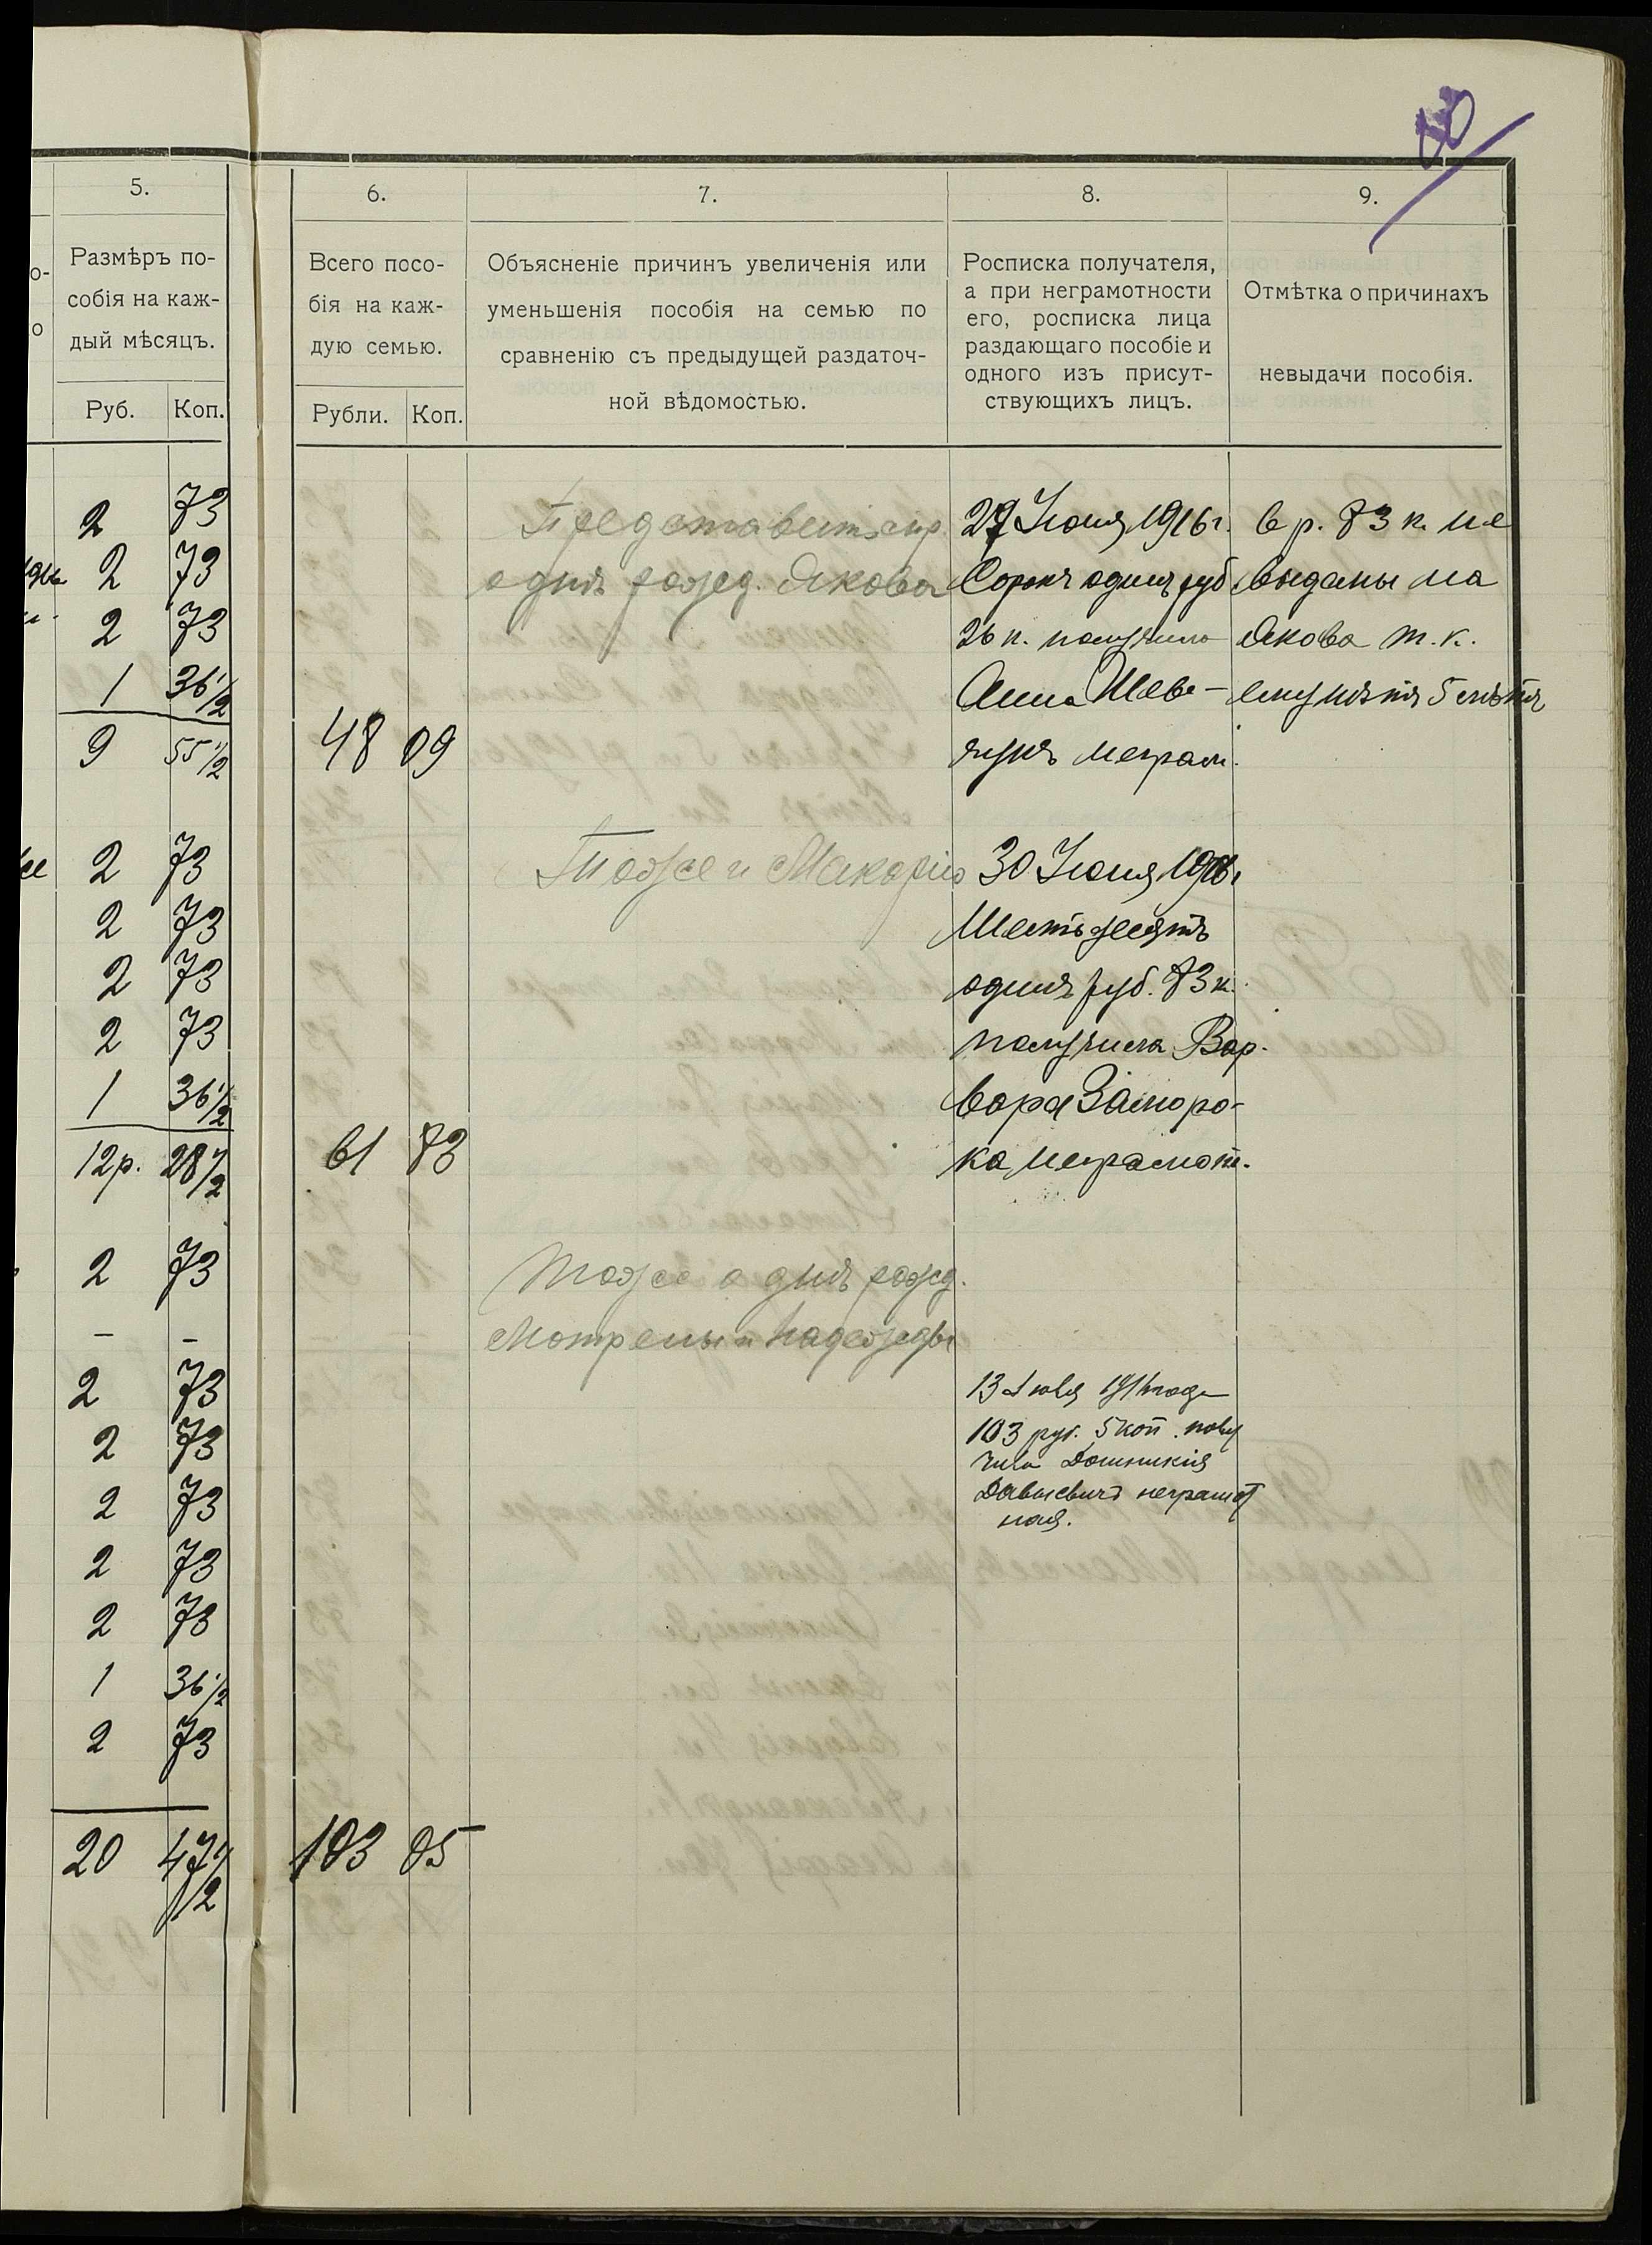 40
5.
6.
7.
8.
9.
о-
о
Размѣръ по-
собія на каж-
дый мѣсяцъ.
Руб. Коп.
Всего посо-
бія на каж-
дую семью.
Рубли. Коп.
Объясненіе причинъ увеличенія или
уменьшенія пособія на семью по
сравненію съ предыдущей раздаточ-
ной вѣдомостью.
Росписка получателя,
а при неграмотности
его, росписка лица
раздающаго пособіе и
одного изъ присут-
ствующихъ лицъ.
Отмѣтка о причинахъ
невыдачи пособія.
2 73
2 73
2 73
1 36 1/2
9 55 1/2
48 09
Представить
о днѣ рожд. Якова
27 Июня 1916 г.
Сорокъ одинъ руб
26 к. получила
Анна Шев-
чукъ неграм.
6 р. 83 к. не
выданы на
Якова т. к.
ему нѣтъ 5 лѣтъ
2 73
2 73
2 73
2 73
1 36 1/2
12 р. 28 1/2
61 83
Тоже и Макарія
30 Июня 1916 г
Шестьдесятъ
одинъ руб. 83 к.
получила Вар-
вара Заморо-
ка неграмотн.
2 73
- -
2 73
2 73
2 73
2 73
2 73
1 36 1/2
2 73
20 47 1/2
103 05
Тоже о днѣ рожд.
Мотрены и Надежды
13 Іюля 1916 года
103 руб. 5 коп. полу
чила Домникія
Давысвичъ неграмот
ная.